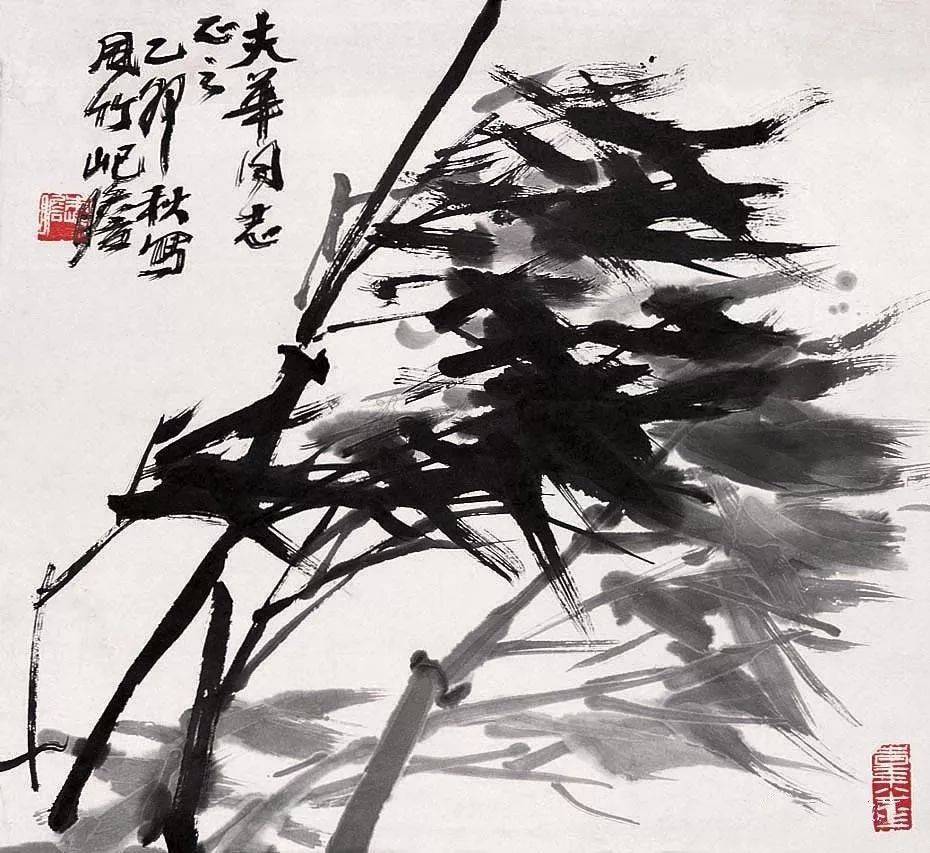 夫華同志
正之
乙卯秋寫
風竹屺瞻